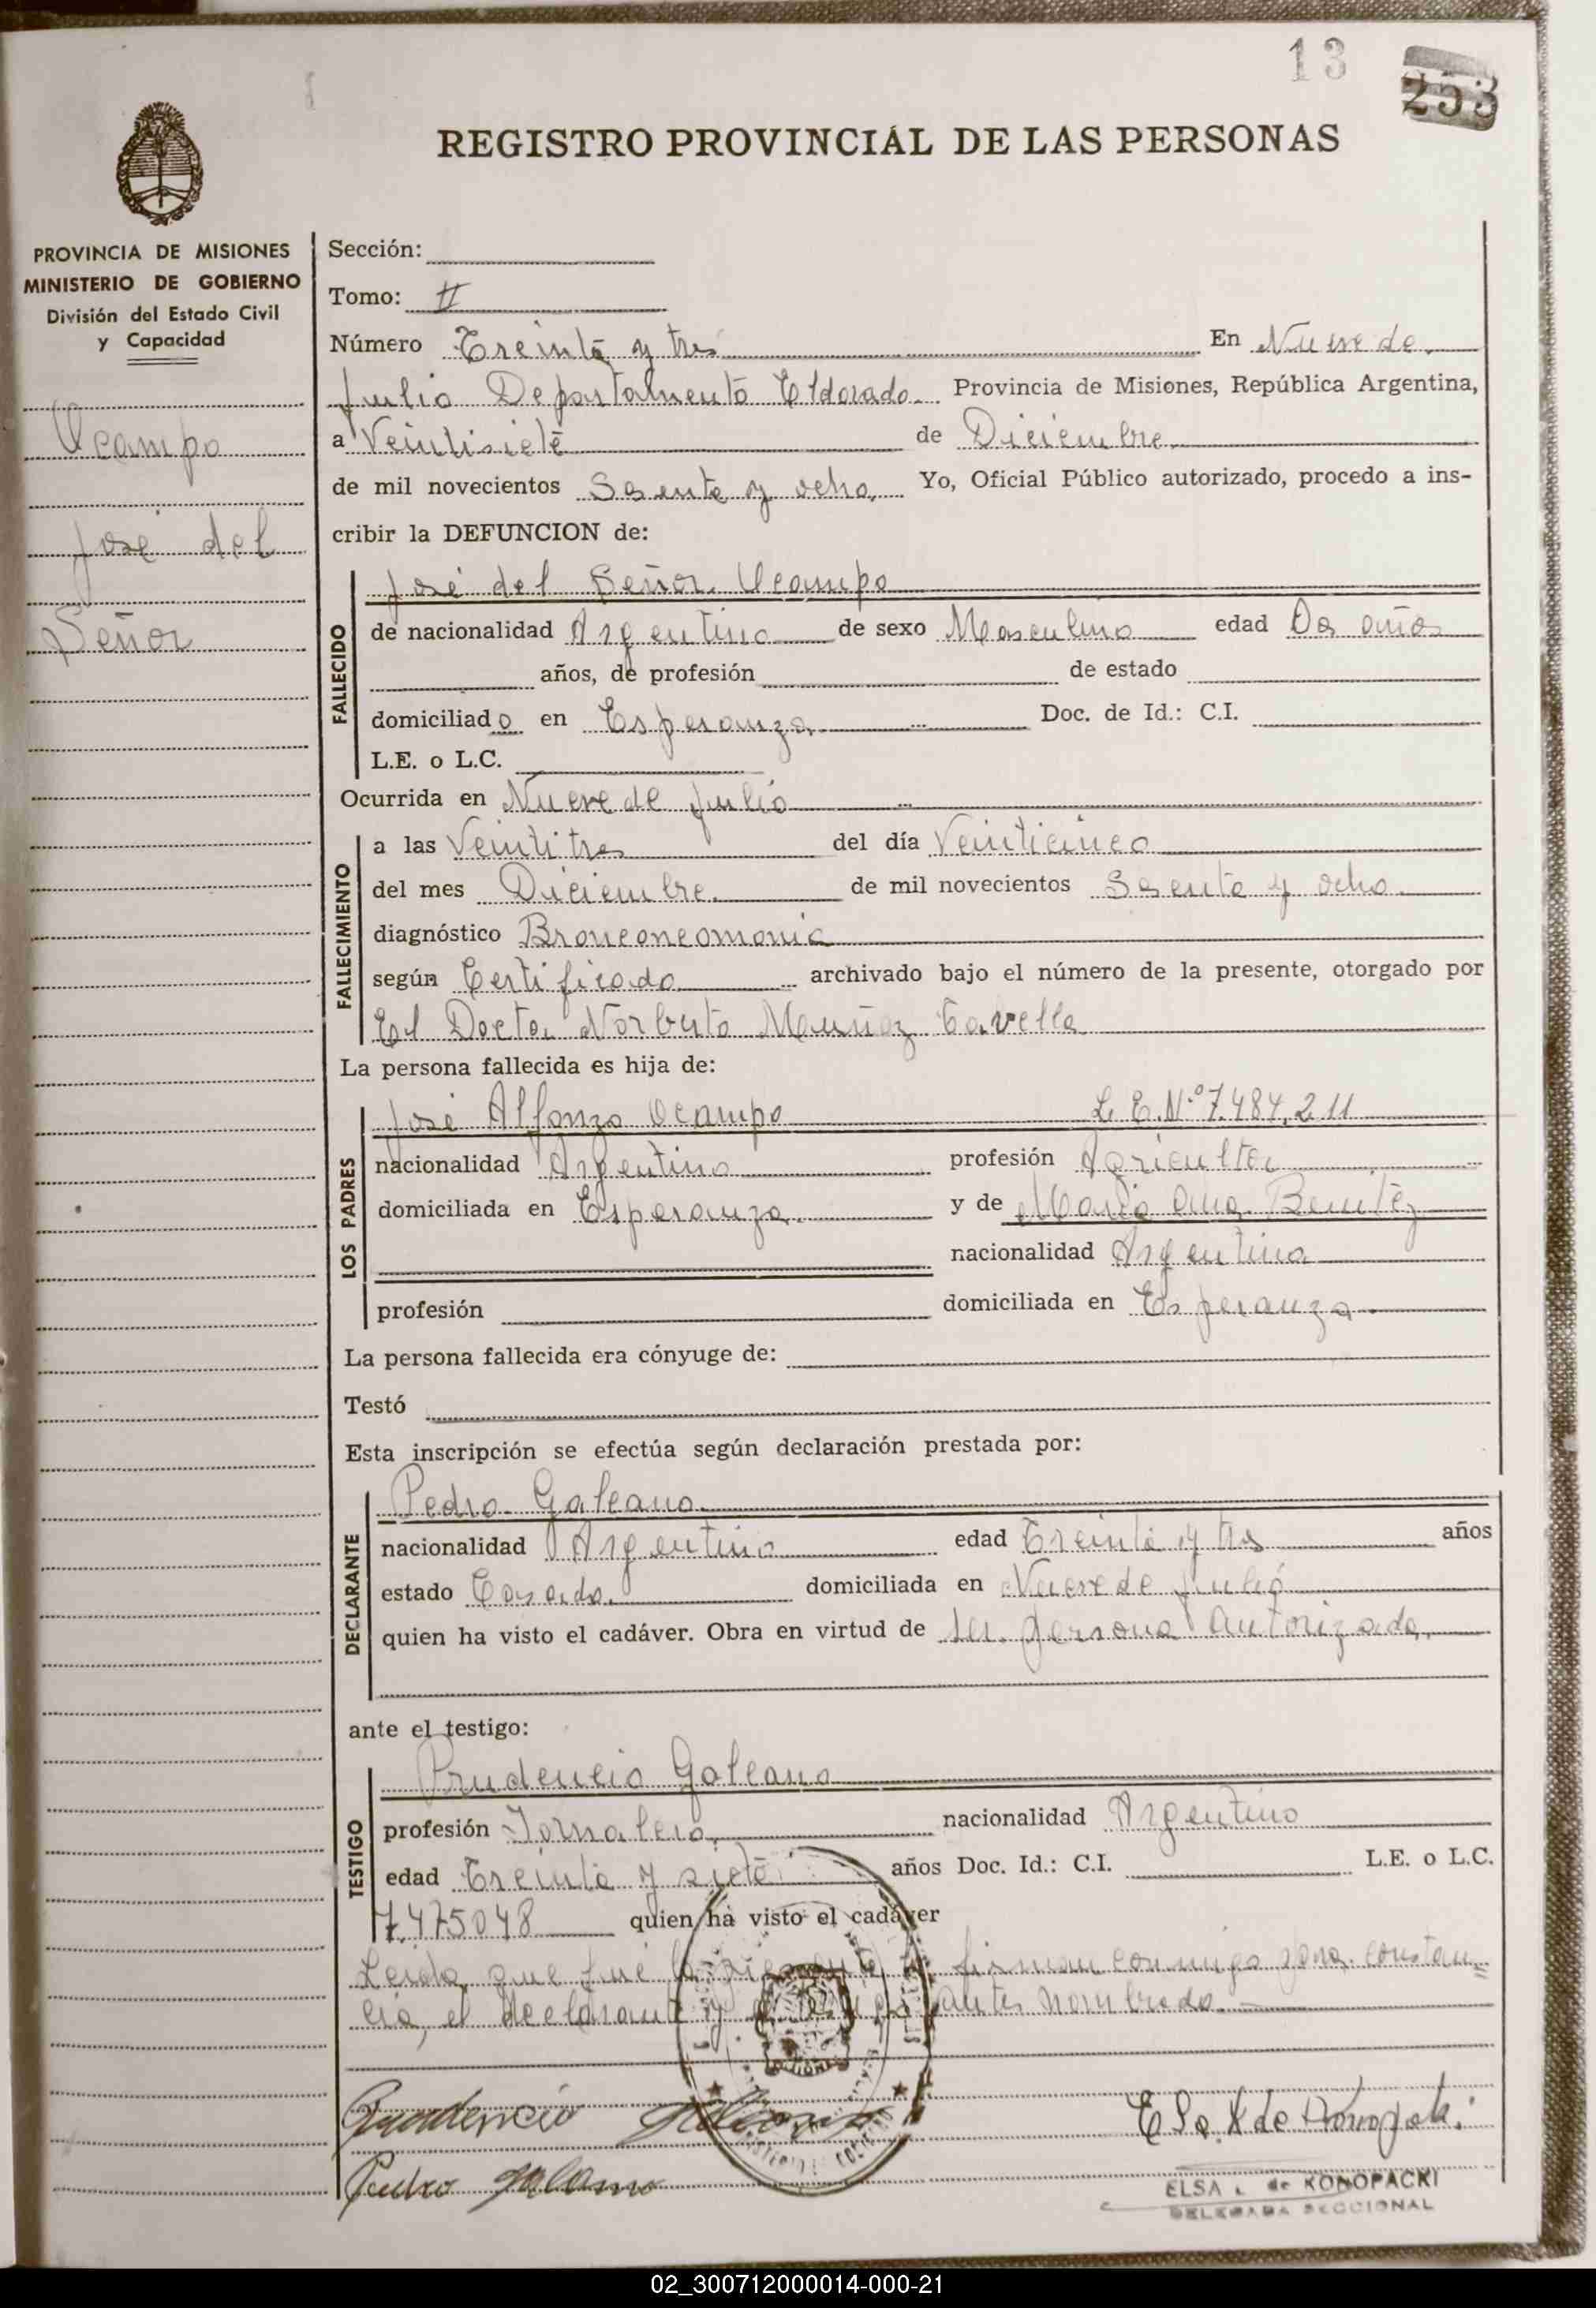 13
253
REGISTRO PROVINCIAL DE LAS PERSONAS
PROVINCIA DE MISIONES
MINISTERIO DE GOBIERNO
División del Estado Civil
y Capacidad
Ocampo
José del
Señor
Sección:
Tomo: II
Número Treinta y tres En Nueve de
Julio Departamento Eldorado. Provincia de Misiones, República Argentina,
a Veintisiete de Diciembre
de mil novecientos Sesenta y ocho Yo, Oficial Público autorizado, procedo a ins-
cribir la DEFUNCION de:
José del Señor Ocampo
FALLECIDO
de nacionalidad Argentino de sexo Masculino edad Dos años
años, de profesión de estado
domiciliado en Esperanza Doc. de Id.: C.I.
L.E. o L.C.
Ocurrida en Nueve de Julio
FALLECIMIENTO
a las Veintitres del día Veinticinco
del mes Diciembre. de mil novecientos Sesenta y ocho.
diagnóstico Bronconeomonia
según Certificado archivado bajo el número de la presente, otorgado por
El Doctor Norberto Muñoz Cavella
La persona fallecida es hija de:
LOS PADRES
José Alfonzo Ocampo L.E.Nº 7.484,211
nacionalidad Argentino profesión Agricultor
domiciliada en Esperanza. y de Maria Ana Benitez
nacionalidad Argentina
profesión domiciliada en Esperanza
La persona fallecida era cónyuge de:
Testó
Esta inscripción se efectúa según declaración prestada por:
DECLARANTE
Pedro Galeano
nacionalidad Argentino edad Treinta y tres años
estado Casado. domiciliada en Nueve de Julio
quien ha visto el cadáver. Obra en virtud de ser persona autorizada.
ante el testigo:
TESTIGO
Prudencio Galeano
profesión Jornalero nacionalidad Argentino
edad Treinta y siete años Doc. Id.: C.I. L.E. o L.C.
7.475048 quien ha visto el cadáver
Leida que fué la presente la firman conmigo para constan=
cia, el declarante y el testigo antes nombrado.
Prudencio Galeano
Pedro Galeano
ELSA de KONOPACKI
DELEGADA SECCIONAL
02_300712000014-000-21